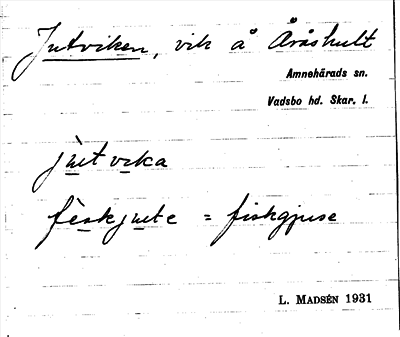 Jutviken, vik å Åråshult
Amnehärads sn.
Vadsbo hd. Skar. l.
jùtvika
fèskjute = fiskgjuse
L. MADSÉN 1931